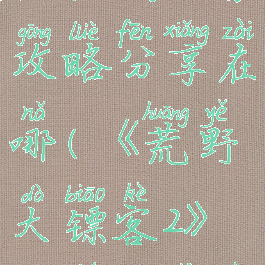 gōng lüè fēn xiǎng zài
攻略分享在
nǎ huāng yě
哪(《荒野
dà biāo kè
大镖客2》